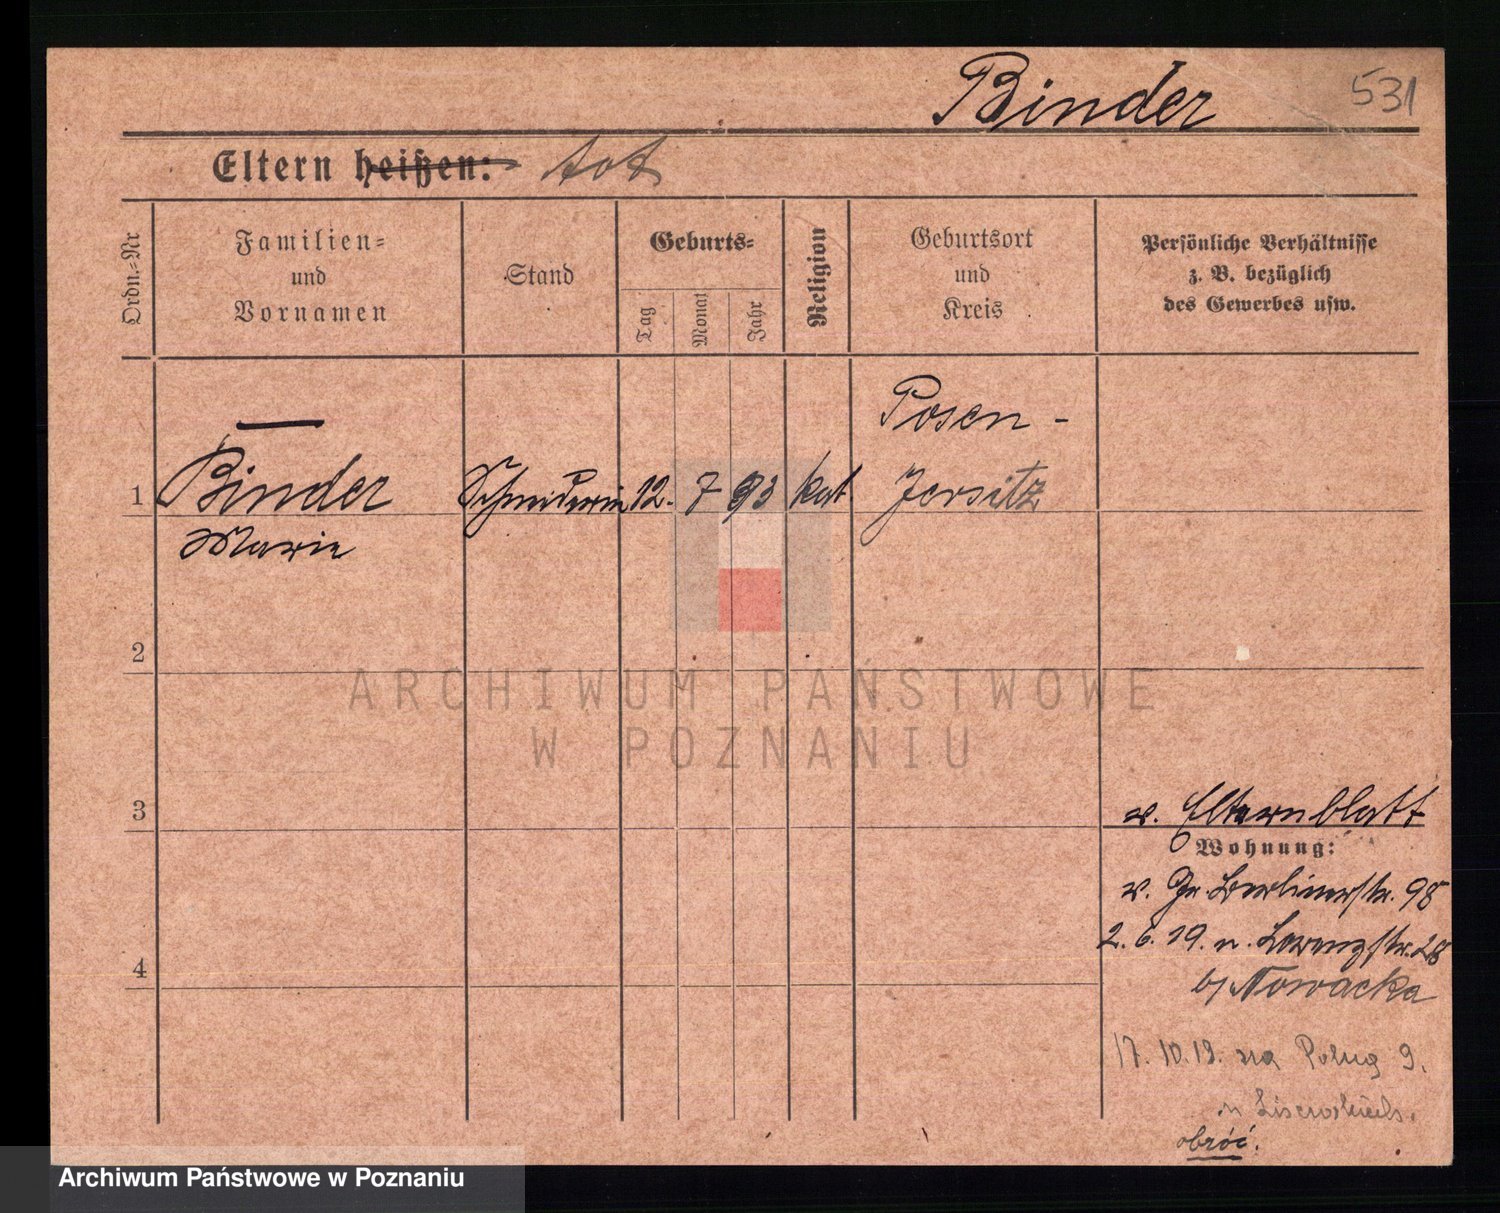 Binder 531
Eltern heißen: tot
Ordn.-Nr
Familien=
und
Vornamen
Stand
Geburts=
Tag
Monat
Jahr
Religion
Geburtsort
und
Kreis
Persönliche Verhältnisse
z. B. bezüglich
des Gewerbes usw.
Posen -
1 Binder Schneiderin 12. 7 93 kat Jersitz
Marie
2
ARCHIWUM PAŃSTWOWE
W POZNANIU
3
v. Elternblatt
Wohnung:
v. Gr. Berlinerstr. 98
2. 6. 19. n. Lorenzstr. 28
4
b/ Nowacka
17. 10. 19. na Polną 9.
obróć.
Archiwum Państwowe w Poznaniu